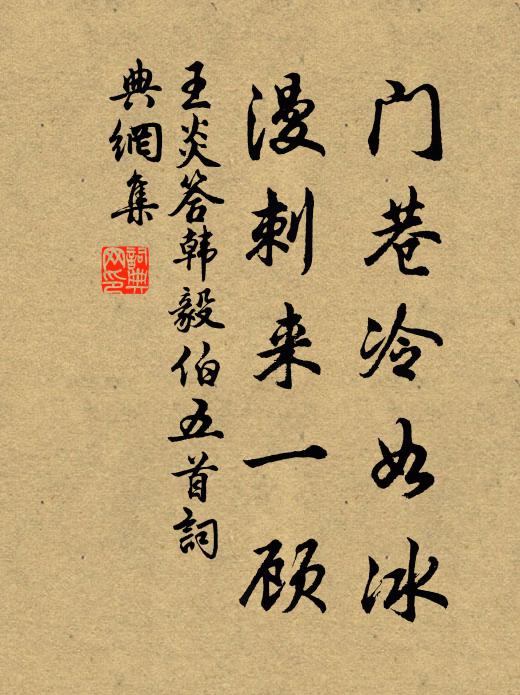 门巷冷如冰
漫刺来一顾
王炎答韩毅伯五首詞
典網集
詞典
网印